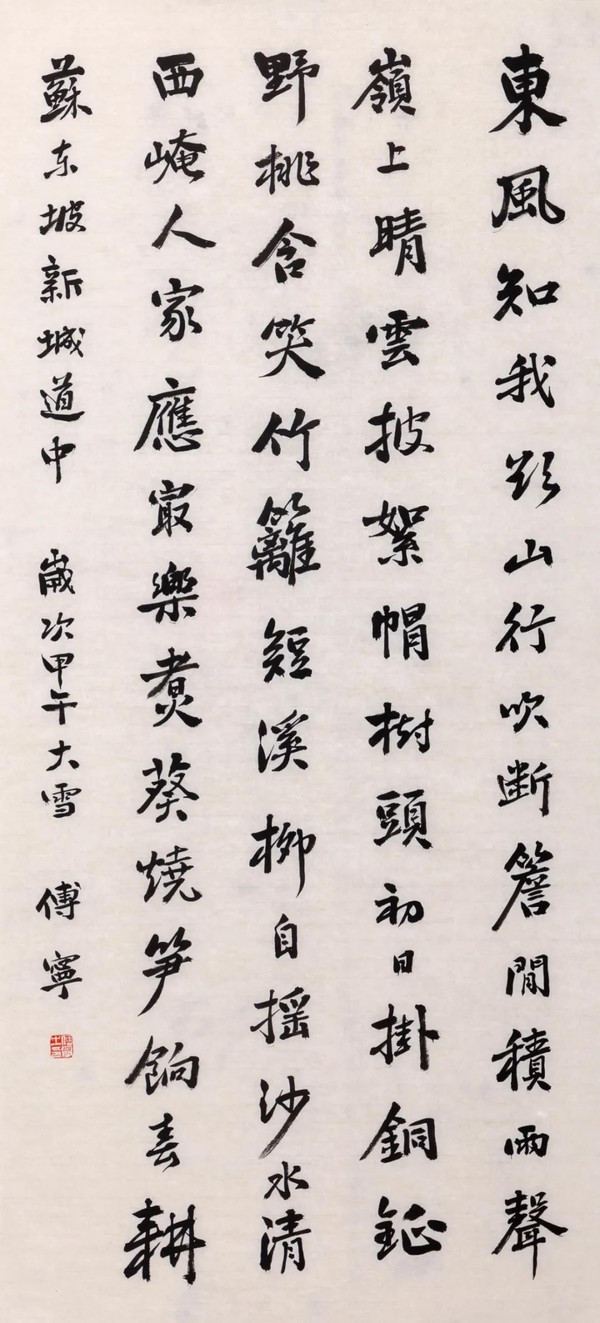 東風知我欲山行吹断簷間積雨聲
嶺上晴雲披絮帽樹頭初日掛銅鉦
野桃含笑竹籬短溪柳自摇沙水清
西崦人家應最樂煮葵燒笋餉春耕
蘇东坡新城道中 歲次甲午大雪 傅寧